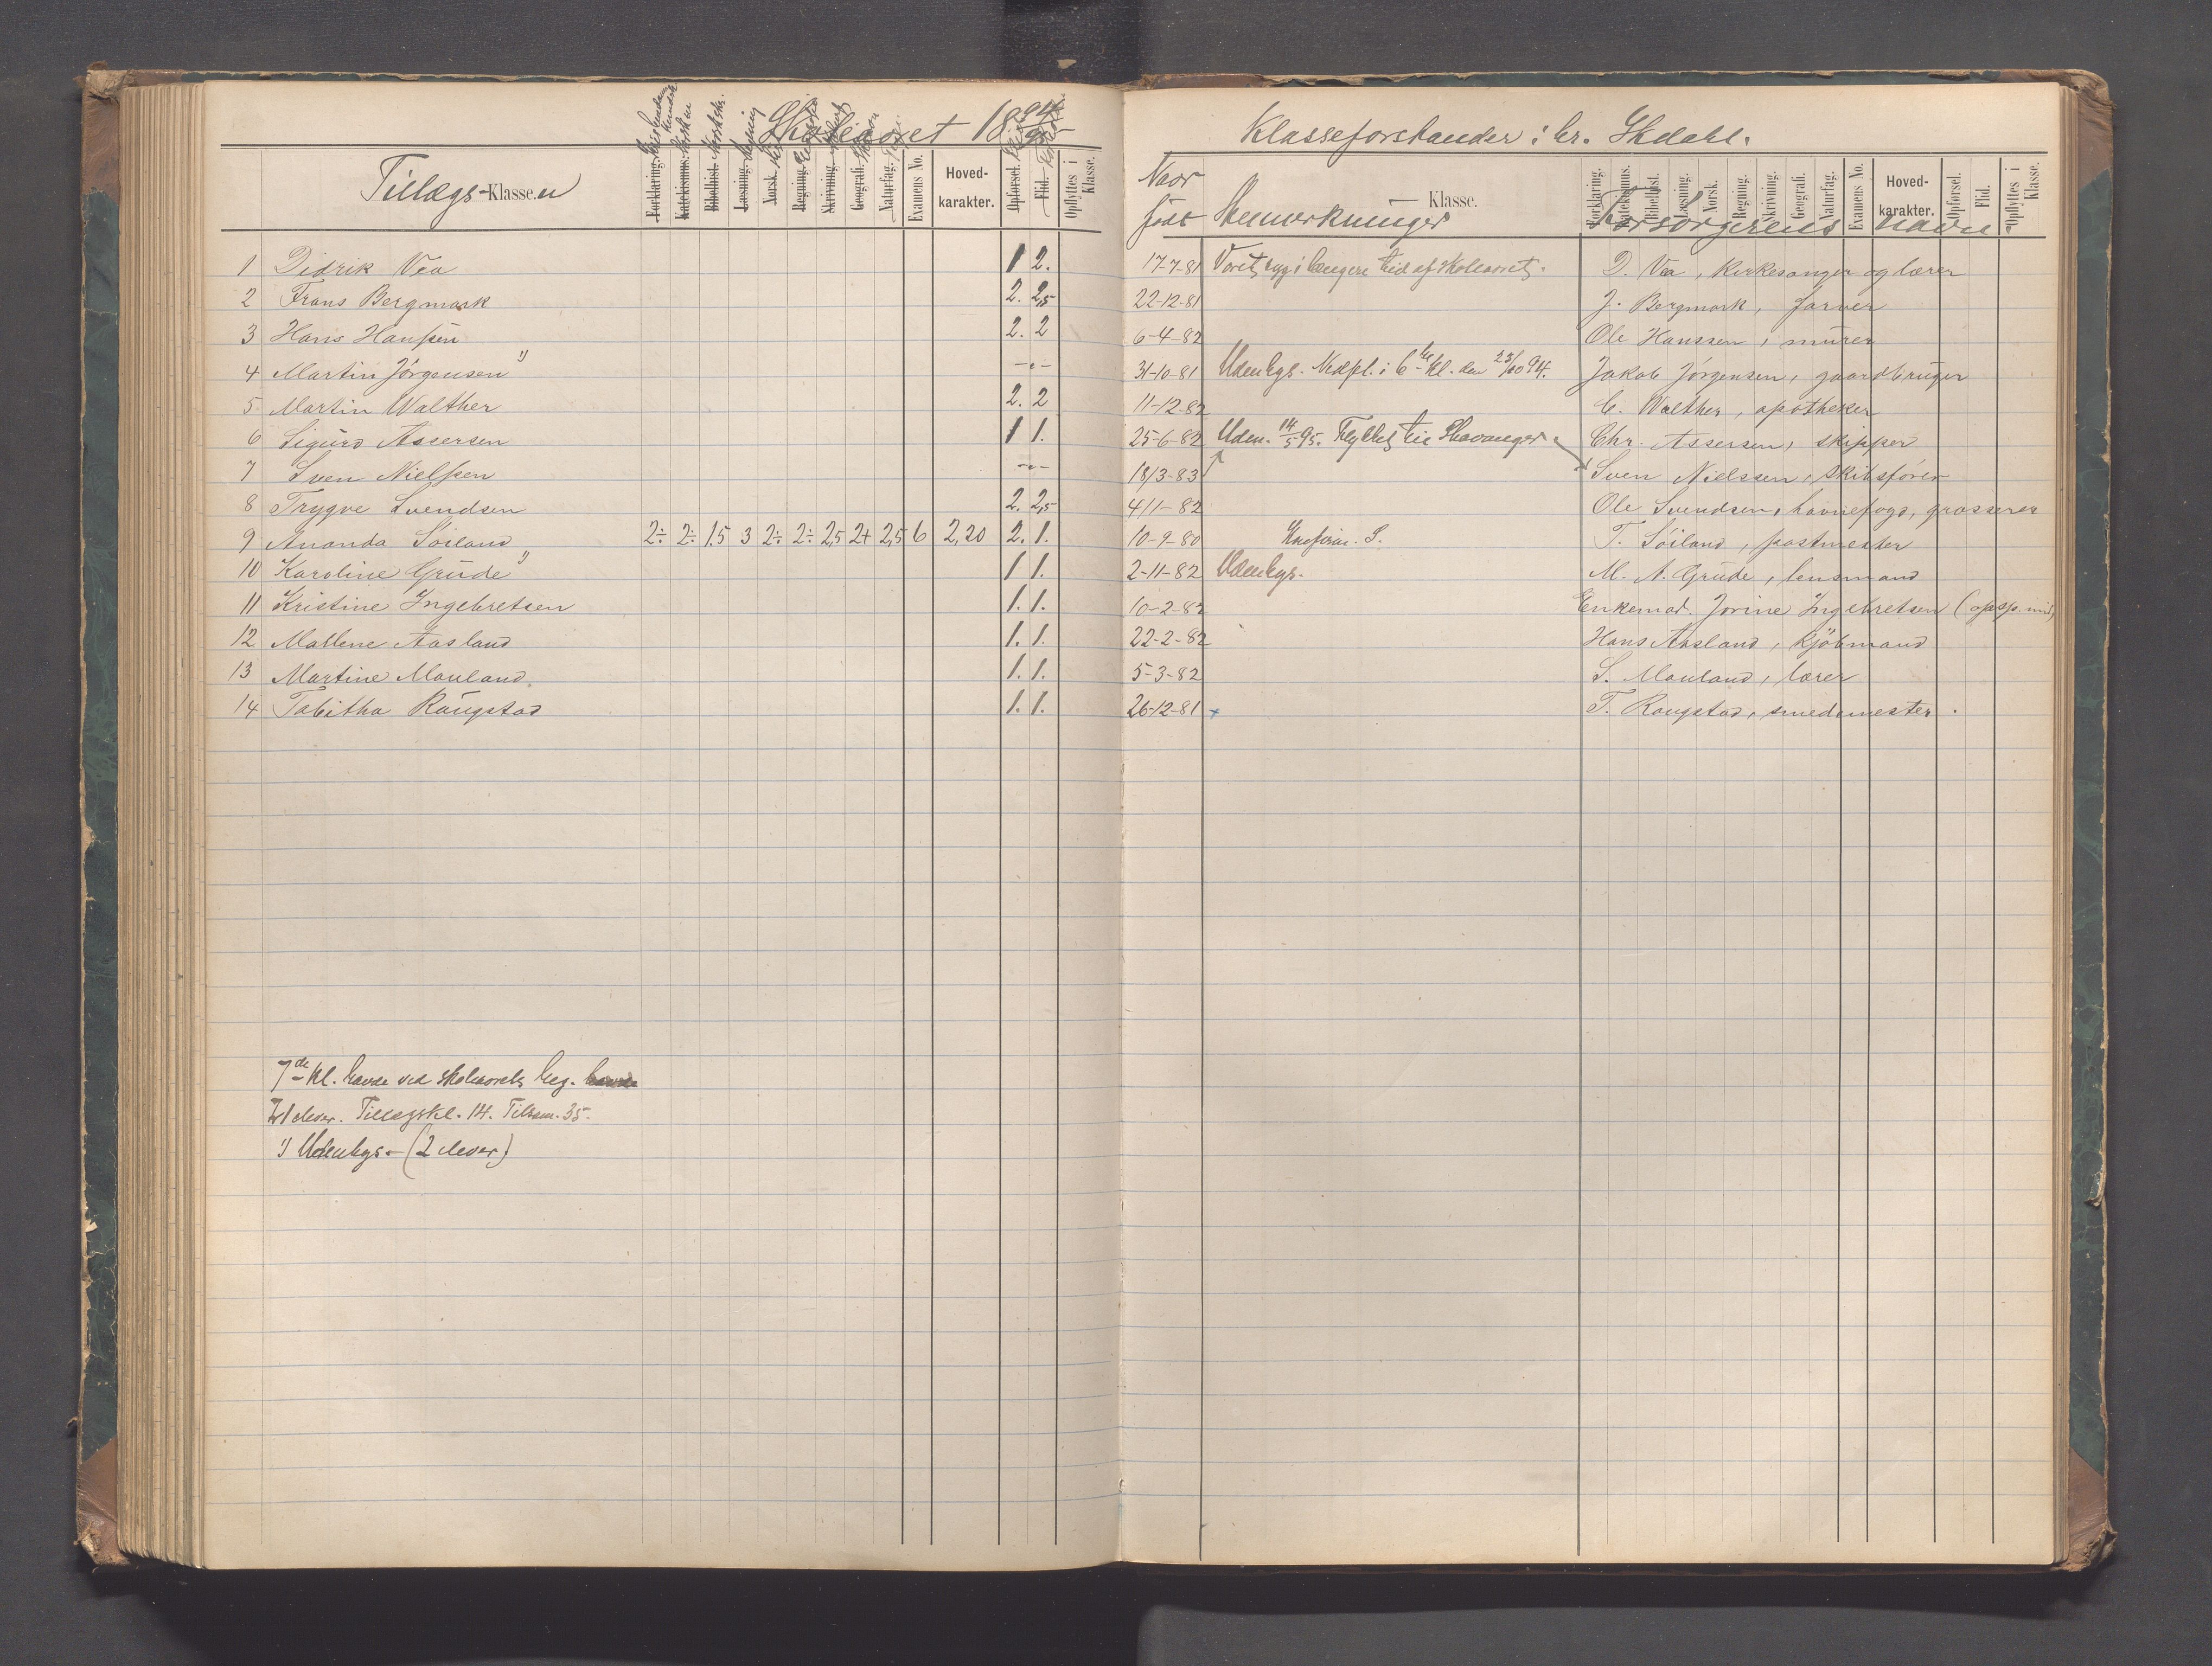 Skoleaaret 1894/95
Tillægs-Klassen
Forklaring. Katekismus. Bibelhist. Læsning. Norsk. Regning. Skrivning. Geografi. Naturfag. Examens No. Hoved-karakter. Opførsel. Flid. Opflyttes i Klasse.
1 Didrik Vea 1 2.
2 Frans Bergmark 2. 2,5
3 Hans Hanssen 2. 2
4 Martin Jörgensen 1) -"-
5 Martin Walther 2. 2
6 Sigurd Assersen 1 1.
7 Sven Nielssen -"-
8 Trygve Svendsen 2. 2,5
9 Ananda Söiland 2÷ 2÷ 1.5 3 2÷ 2÷ 2,5 2+ 2,5 6 2,20 2. 1.
10 Karoline Grude 1) 1 1.
11 Kristine Ingebretsen 1. 1.
12 Mallene Aasland 1. 1.
13 Martine Mauland. 1. 1.
14 Tabitha Raugstad 1. 1.
7de Kl. havde ved skoleaarets beg.
21 elever. Tillægskl. 14. Tilsam. 35.
1) Udenbys - (2 elever)
Klasseforstander: hr. Ekdahl.
Naar født Bemærkninger Klasse. Forsørgerens navn.
Forklaring. Katekismus. Bibelhist. Læsning. Norsk. Regning. Skrivning. Geografi. Naturfag. Examens No. Hoved-karakter. Opførsel. Flid. Opflyttes i Klasse.
17-7-81 Været syg i længere tid af skoleaaret. D. Vea, kirkesanger og lærer
22-12-81 J. Bergmark, farver
6-4-82 Ole Hanssen, murer
31-10-81 Udenbys. Nedfl. i 6te Kl. den 23/10 94. Jakob Jörgensen, gaardbruger
11-12-82 C. Walther, apotheker
25-6-82 Udm. 14/5 95. Flyttet til Stavanger. Chr. Assersen, skipper
18/3-83 Sven Nielssen, skibsfører
4/11-82 Ole Svendsen, havnefogd, grosserer
10-9-80 T. Söiland, postmester
2-11-82 Udenbys. M. A. Grude, lensmand
10-2-82 Enkemad. Jorine Ingebretsen
22-2-82 Hans Aasland, kjöbmand
5-3-82 S. Mauland, lærer
26-12-81 T. Raugstad, smedemester.